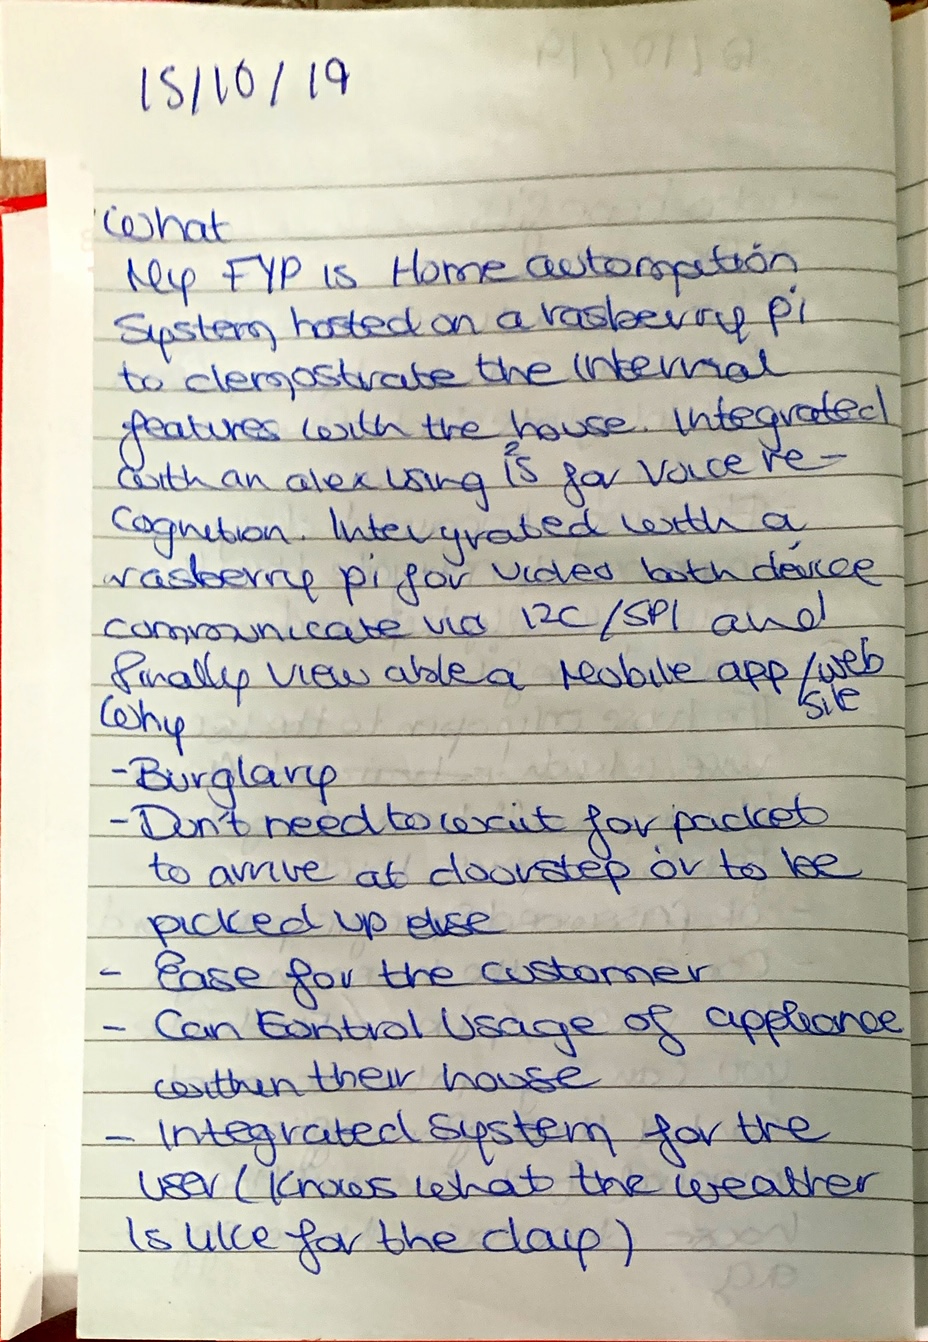 15/10/19
What
My FYP is Home automation
System hosted on a rasberry pi
to demostrate the internal
features with the house. Integrated
with an alex using i²s for voice re-
cognition. Intergrated with a
rasberry pi for video both device
communicate via I2C/SPI and
finally view able a Mobile app/web
site
Why
- Burglary
- Don't need to wait for packet
to arrive at doorstep or to be
picked up else
- Ease for the customer
- Can Control Usage of appliance
within their house
- Integrated System for the
user (Knows what the weather
is like for the day)